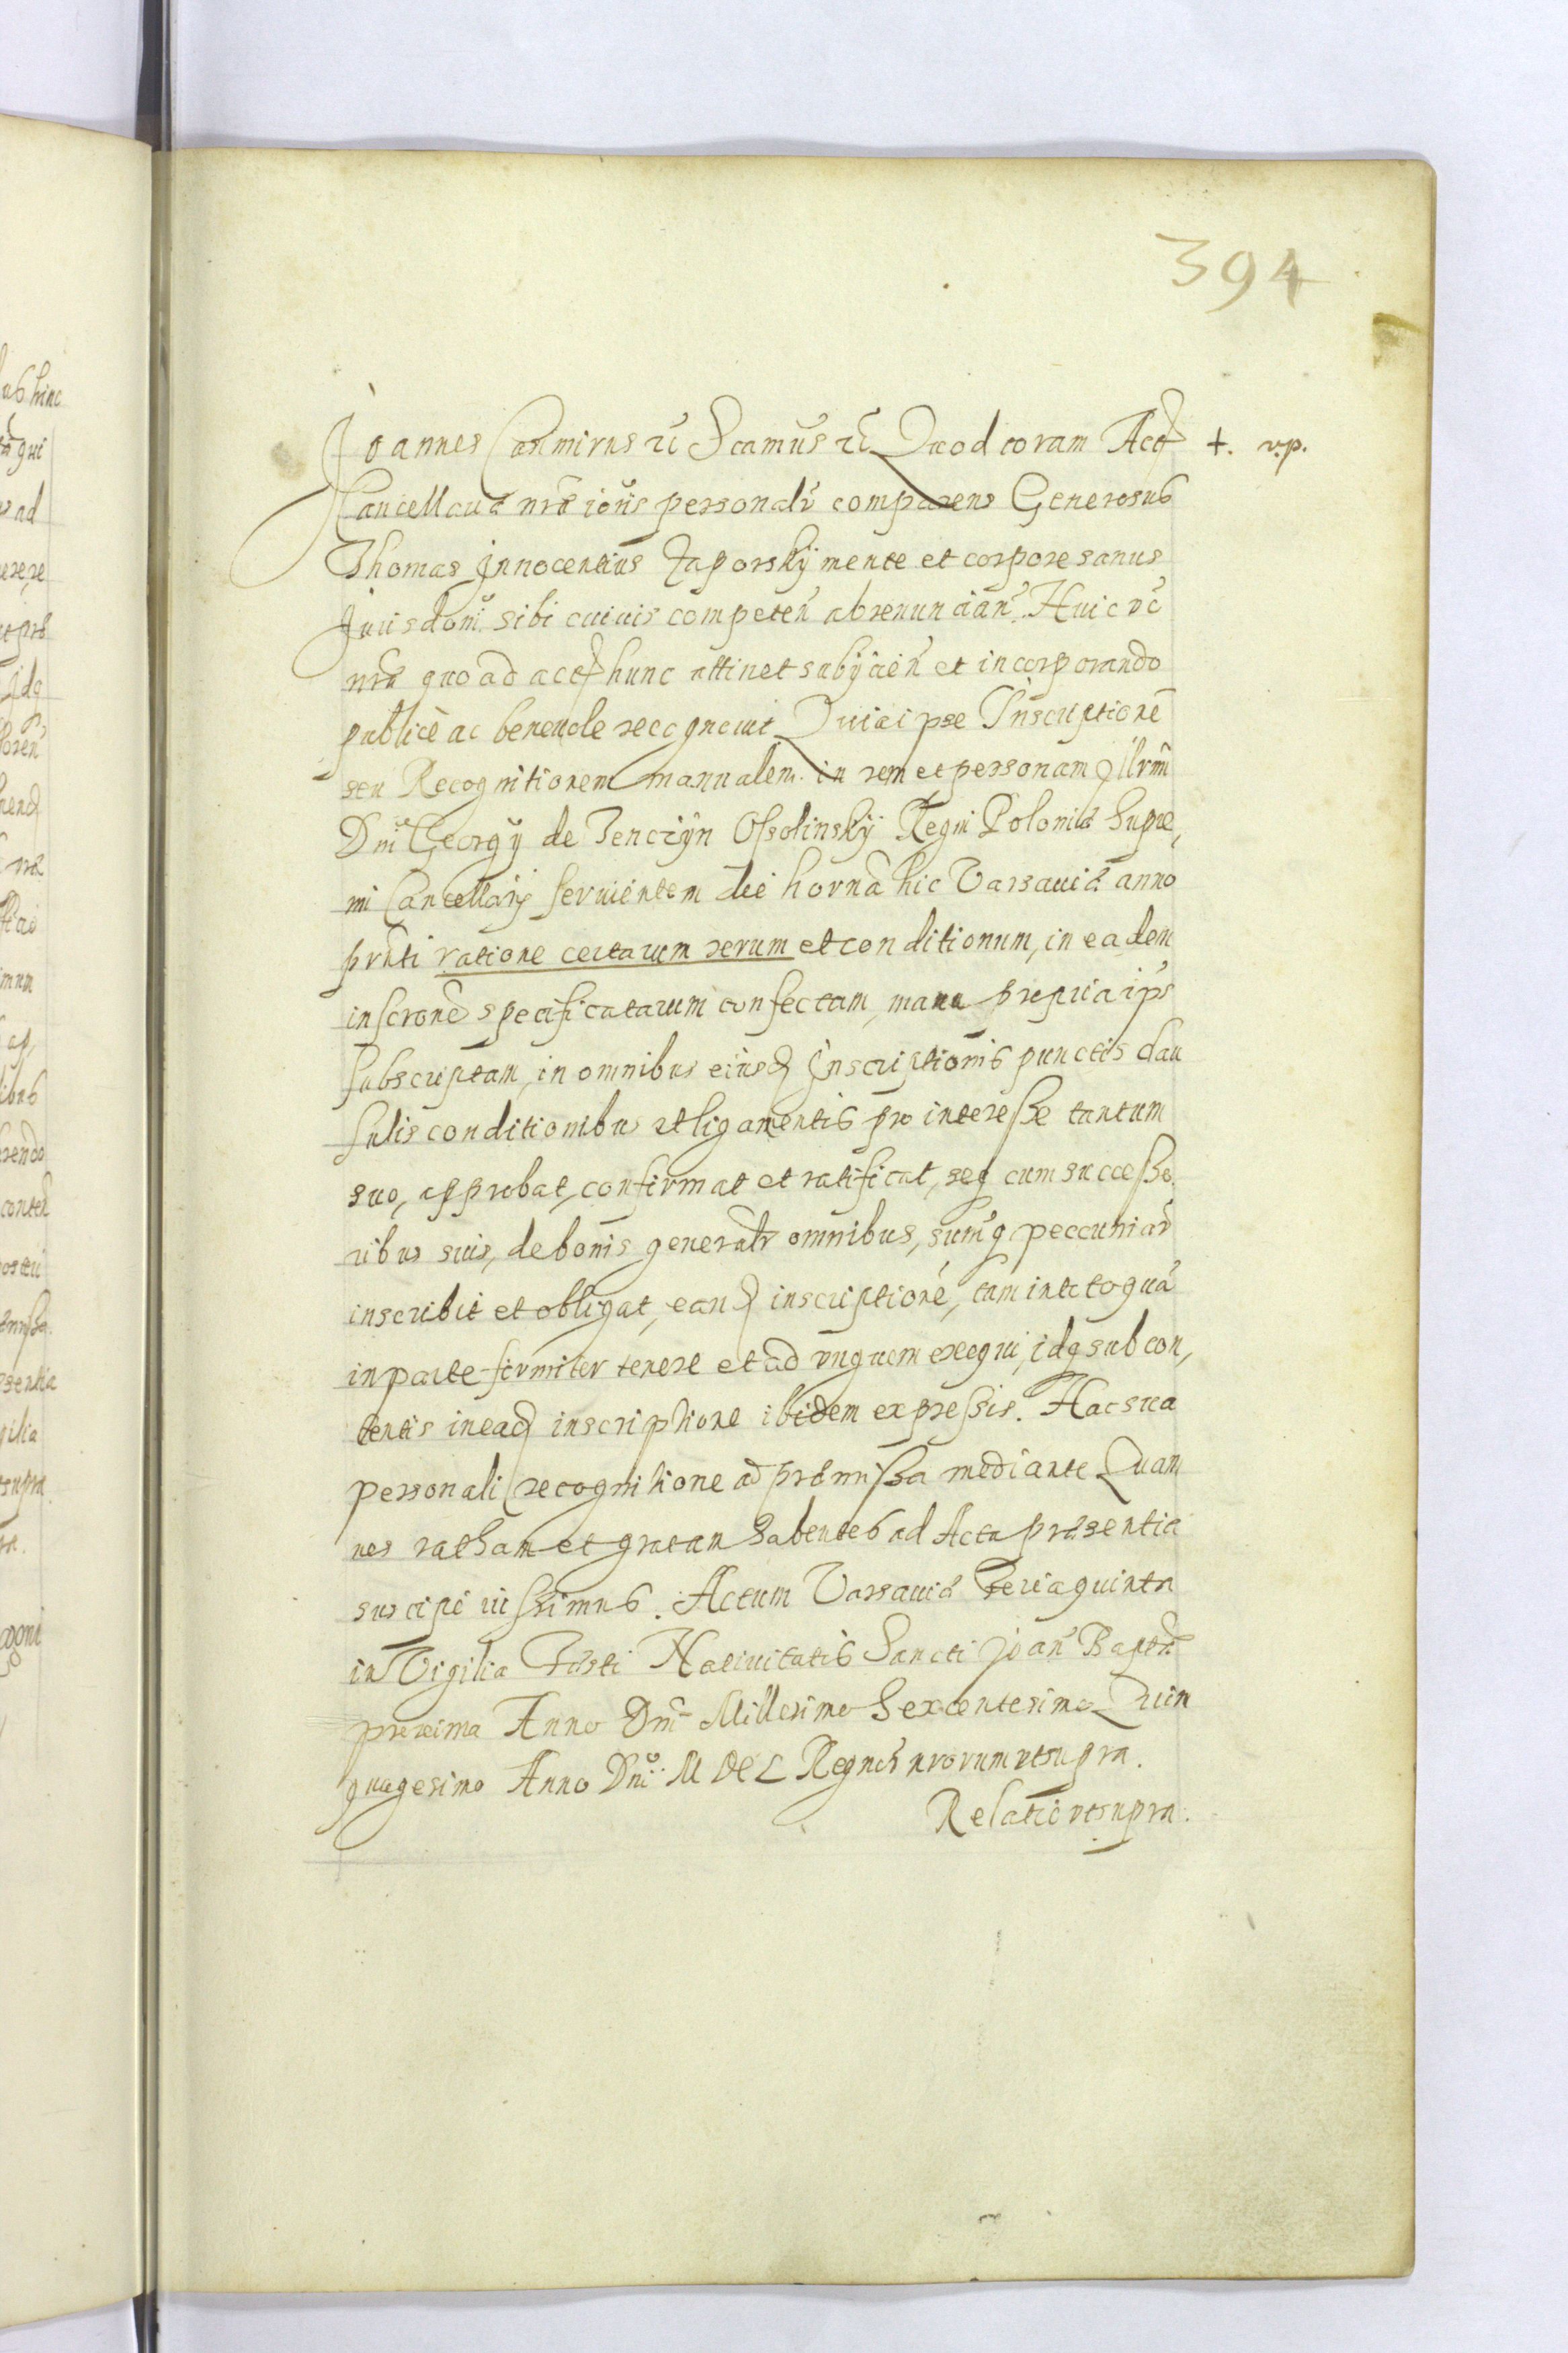 394
Joannes Casimirus etc Scamus etc Quod coram Actis + v.p.
Cancellariæ nræ ioris personalr comparens Generosus
Thomas Innocentius Zaporskÿ mente et corpore sanus
Jurisdoni sibi cuiuis competeñ abrenuncian. Huic vc
nræ quo ad actũ hunc attinet subÿcieñ et incorporando
publicè ac beneuole recognouit Quia ipse Inscriptionẽ
seu Recognitionem manualem in rem et personam Illrmi
Dni Georgÿ de Tenczÿn Ossolinskÿ Regni Poloniæ Supre,
mi Cancellarÿ seruientem die horna hic Varsauiæ anno
prnti ratione certarum rerum et conditionum, in eadem
inscrone specificatarum confectam, manu propria ips
subscriptam, in omnibus eiusd Inscriptionis punctis clau
sulis conditionibus et ligamentis pro interesse tantum
suo, approbat, confirmat et ratificat, seq cum successo
ribus suis, de bonis generalr omnibus, sumq peccuniar
inscribit et obligat, eand inscriptionẽ, tam in toto quã
in parte firmiter tenere et ad vnguem exequi, idq sub con,
tentis in ead inscriptione ibidem expressis. Hac sua
personali recognitione ad præmissa mediante Quam
nos ratham et gratam habentes ad Acta præsentia
suscipi iussimus. Actum Varsauiæ Feria quinta
in Vigilia Festi Natiuitatis Sancti Joañ Baptæ
proxima Anno Dni Millesimo Sexcentesimo Quin
quagesimo Anno Dni M DC L Regnor nrorum vt supra.
Relatio vt supra.